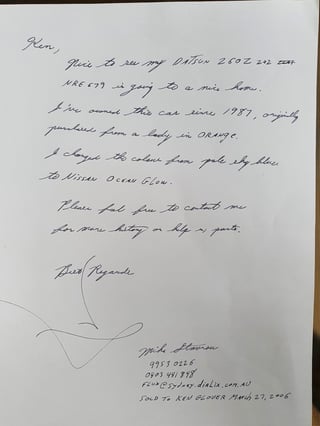 Ken,
Nice to see my DATSUN 260Z 2+2
NRE 679 is going to a nice home.
I've owned this car since 1987, originally
purchased from a lady in ORANGE.
I changed the colour from pale sky blue
to NISSAN OCEAN GLOW.
Please feel free to contact me
for more history or help in parts.
Best Regards
Mike
9953 0226
0403 441 898
@sydney.dialix.com.au
SOLD TO KEN GLOVER March 27, 2006